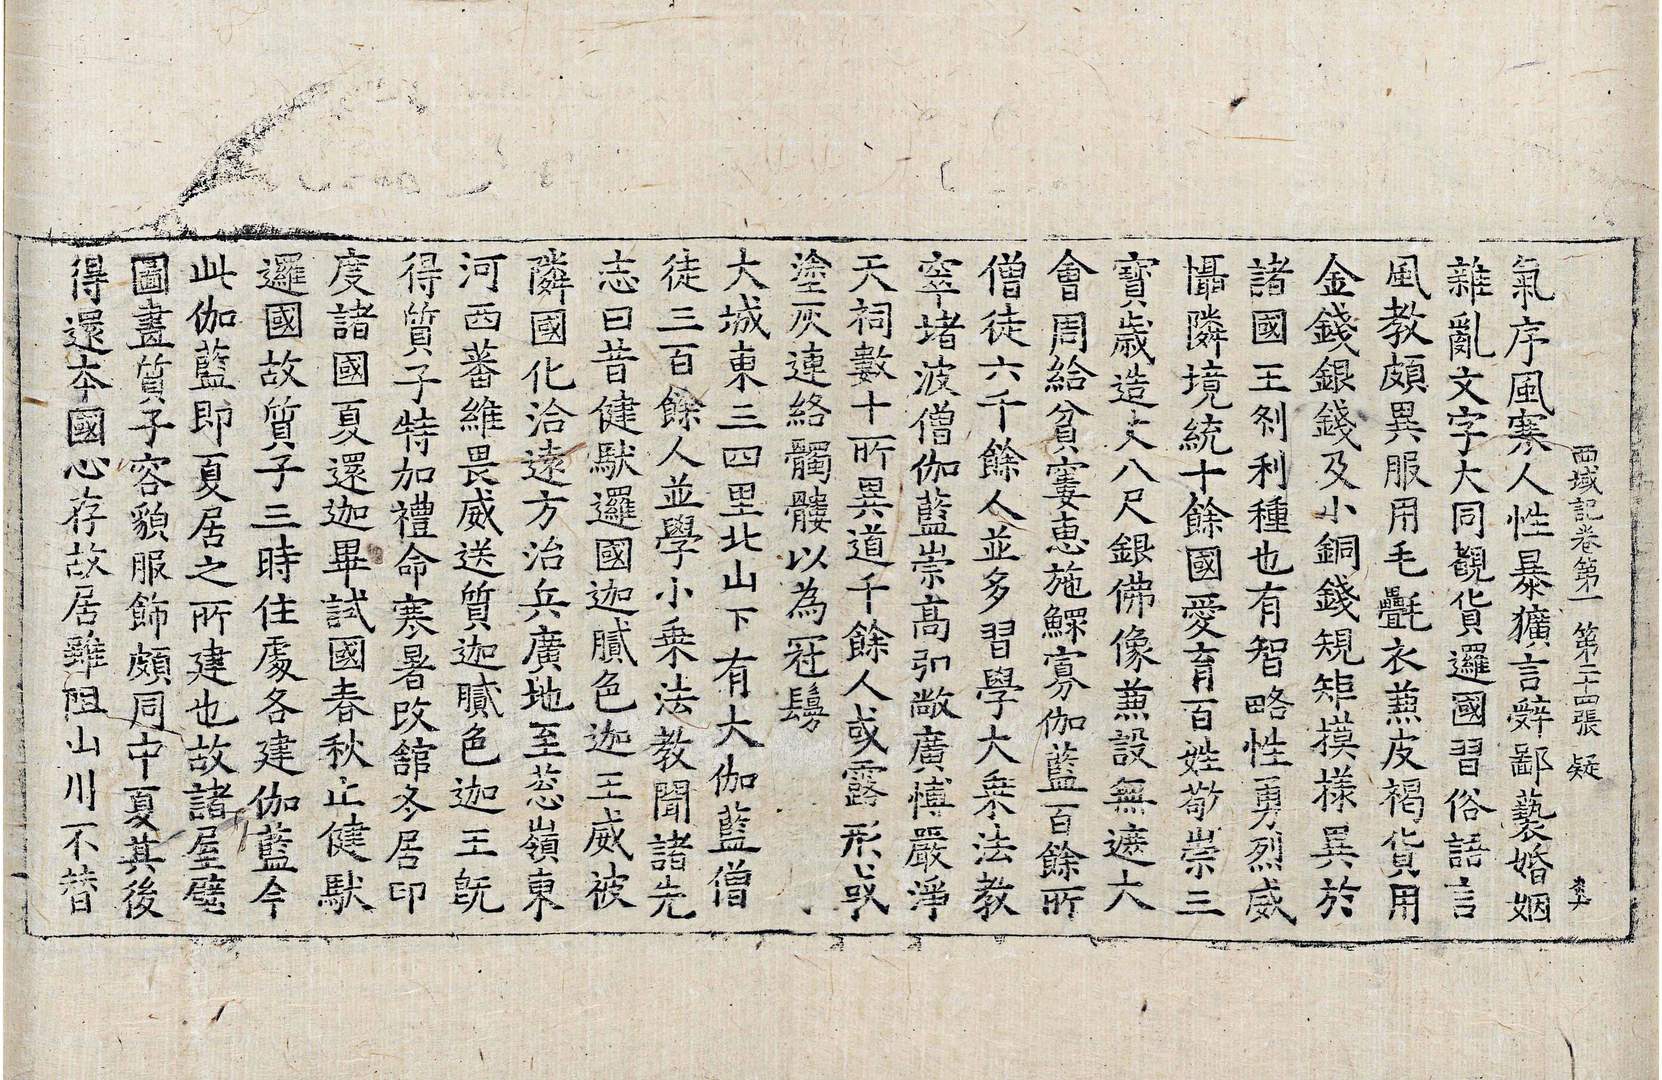 西域記卷第一 第二十四張 疑
氣序風寒人性暴獷言辭鄙䙝婚姻
雜亂文字大同覩貨邏國習俗語言
風教頗異服用毛㲲衣兼皮褐貨用
金錢銀錢及小銅錢規矩摸樣異於
諸國王刹利種也有智略性勇烈威
懾隣境統十餘國愛育百姓敬崇三
寶歲造丈八尺銀佛像兼設無遮大
會周給貧窶惠施鰥寡伽藍百餘所
僧徒六千餘人並多習學大乗法教
窣堵波僧伽藍崇高弘敞廣博嚴淨
天祠數十所異道千餘人或露形或
塗灰連絡髑髏以為冠鬘
大城東三四里北山下有大伽藍僧
徒三百餘人並學小乗法教聞諸先
志曰昔健馱邏國迦膩色迦王威被
隣國化洽遠方治兵廣地至葱嶺東
河西蕃維畏威送質迦膩色迦王旣
得質子特加禮命寒暑改舘冬居印
度諸國夏還迦畢試國春秋止健馱
邏國故質子三時住處各建伽藍今
此伽藍即夏居之所建也故諸屋壁
圖畫質子容貌服飾頗同中夏其後
得還本國心存故居雖阻山川不替